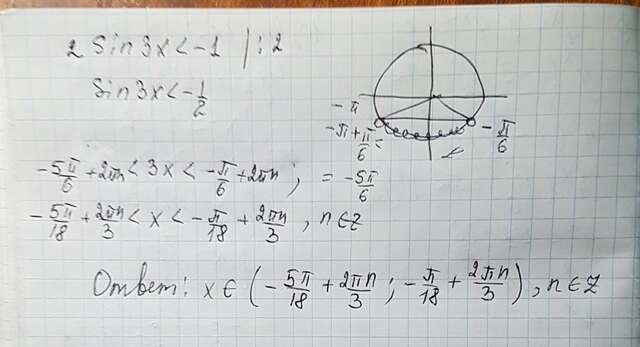 2 Sin3x < -1 | : 2
Sin3x < -1/2
-π
-π + π/6 =
-π/6
-5π/6 + 2πn < 3x < -π/6 + 2πn ; = -5π/6
-5π/18 + 2πn/3 < x < -π/18 + 2πn/3 , n ∈ Z
Ответ: x ∈ (-5π/18 + 2πn/3 ; -π/18 + 2πn/3), n ∈ Z